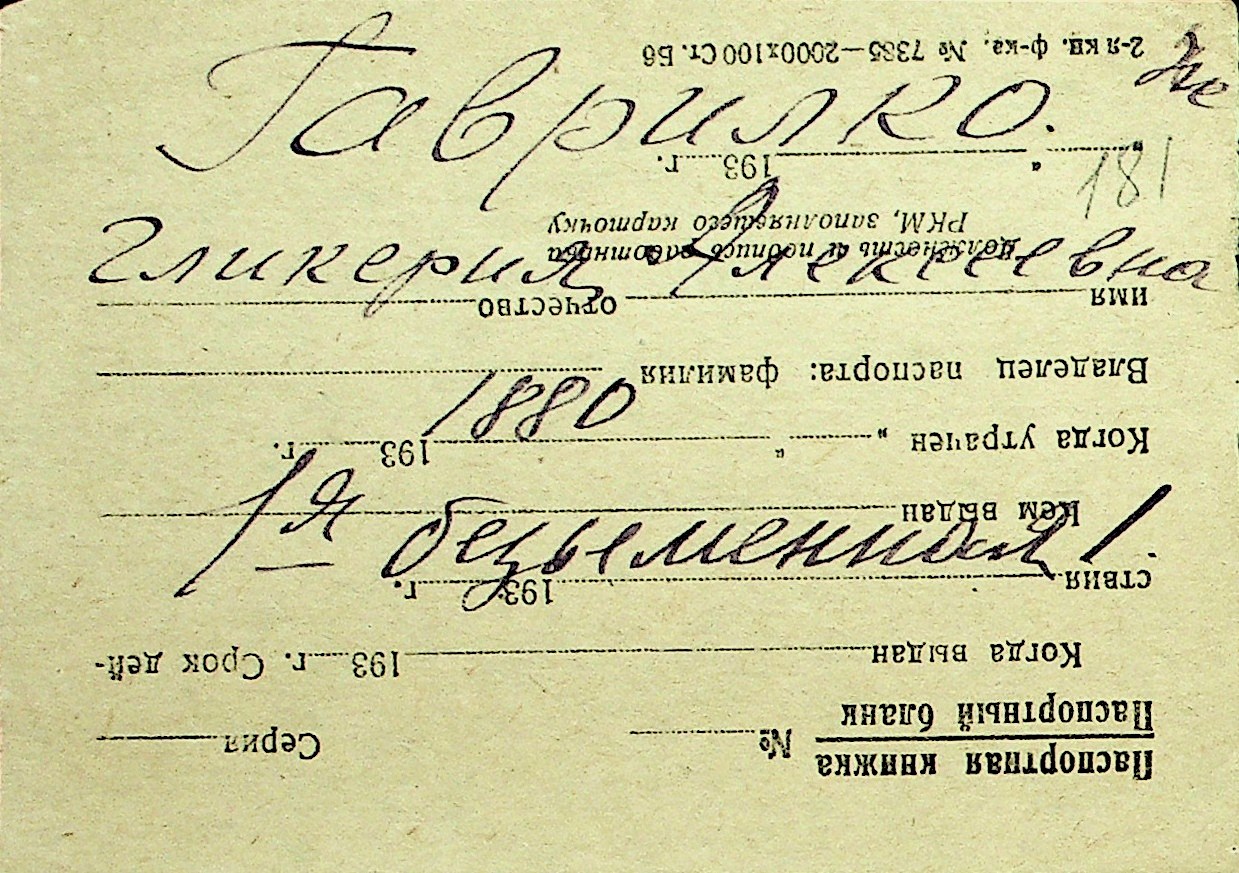 Гаврилко.
181
Гликерия Алексеевна
1880
1я безыменная 1.
Паспортная книжка
Паспортный бланк № Серия
Когда выдан 193 г. Срок дей-
ствия 193 г.
Кем выдан
Когда утрачен „ “ 193 г.
Владелец паспорта: фамилия
имя отчество
Должность и подпись работника
РКМ, заполнявшего карточку
„ “ 193 г.
2-я кн. ф-ка. № 7385—2000х100 Ст. Б6